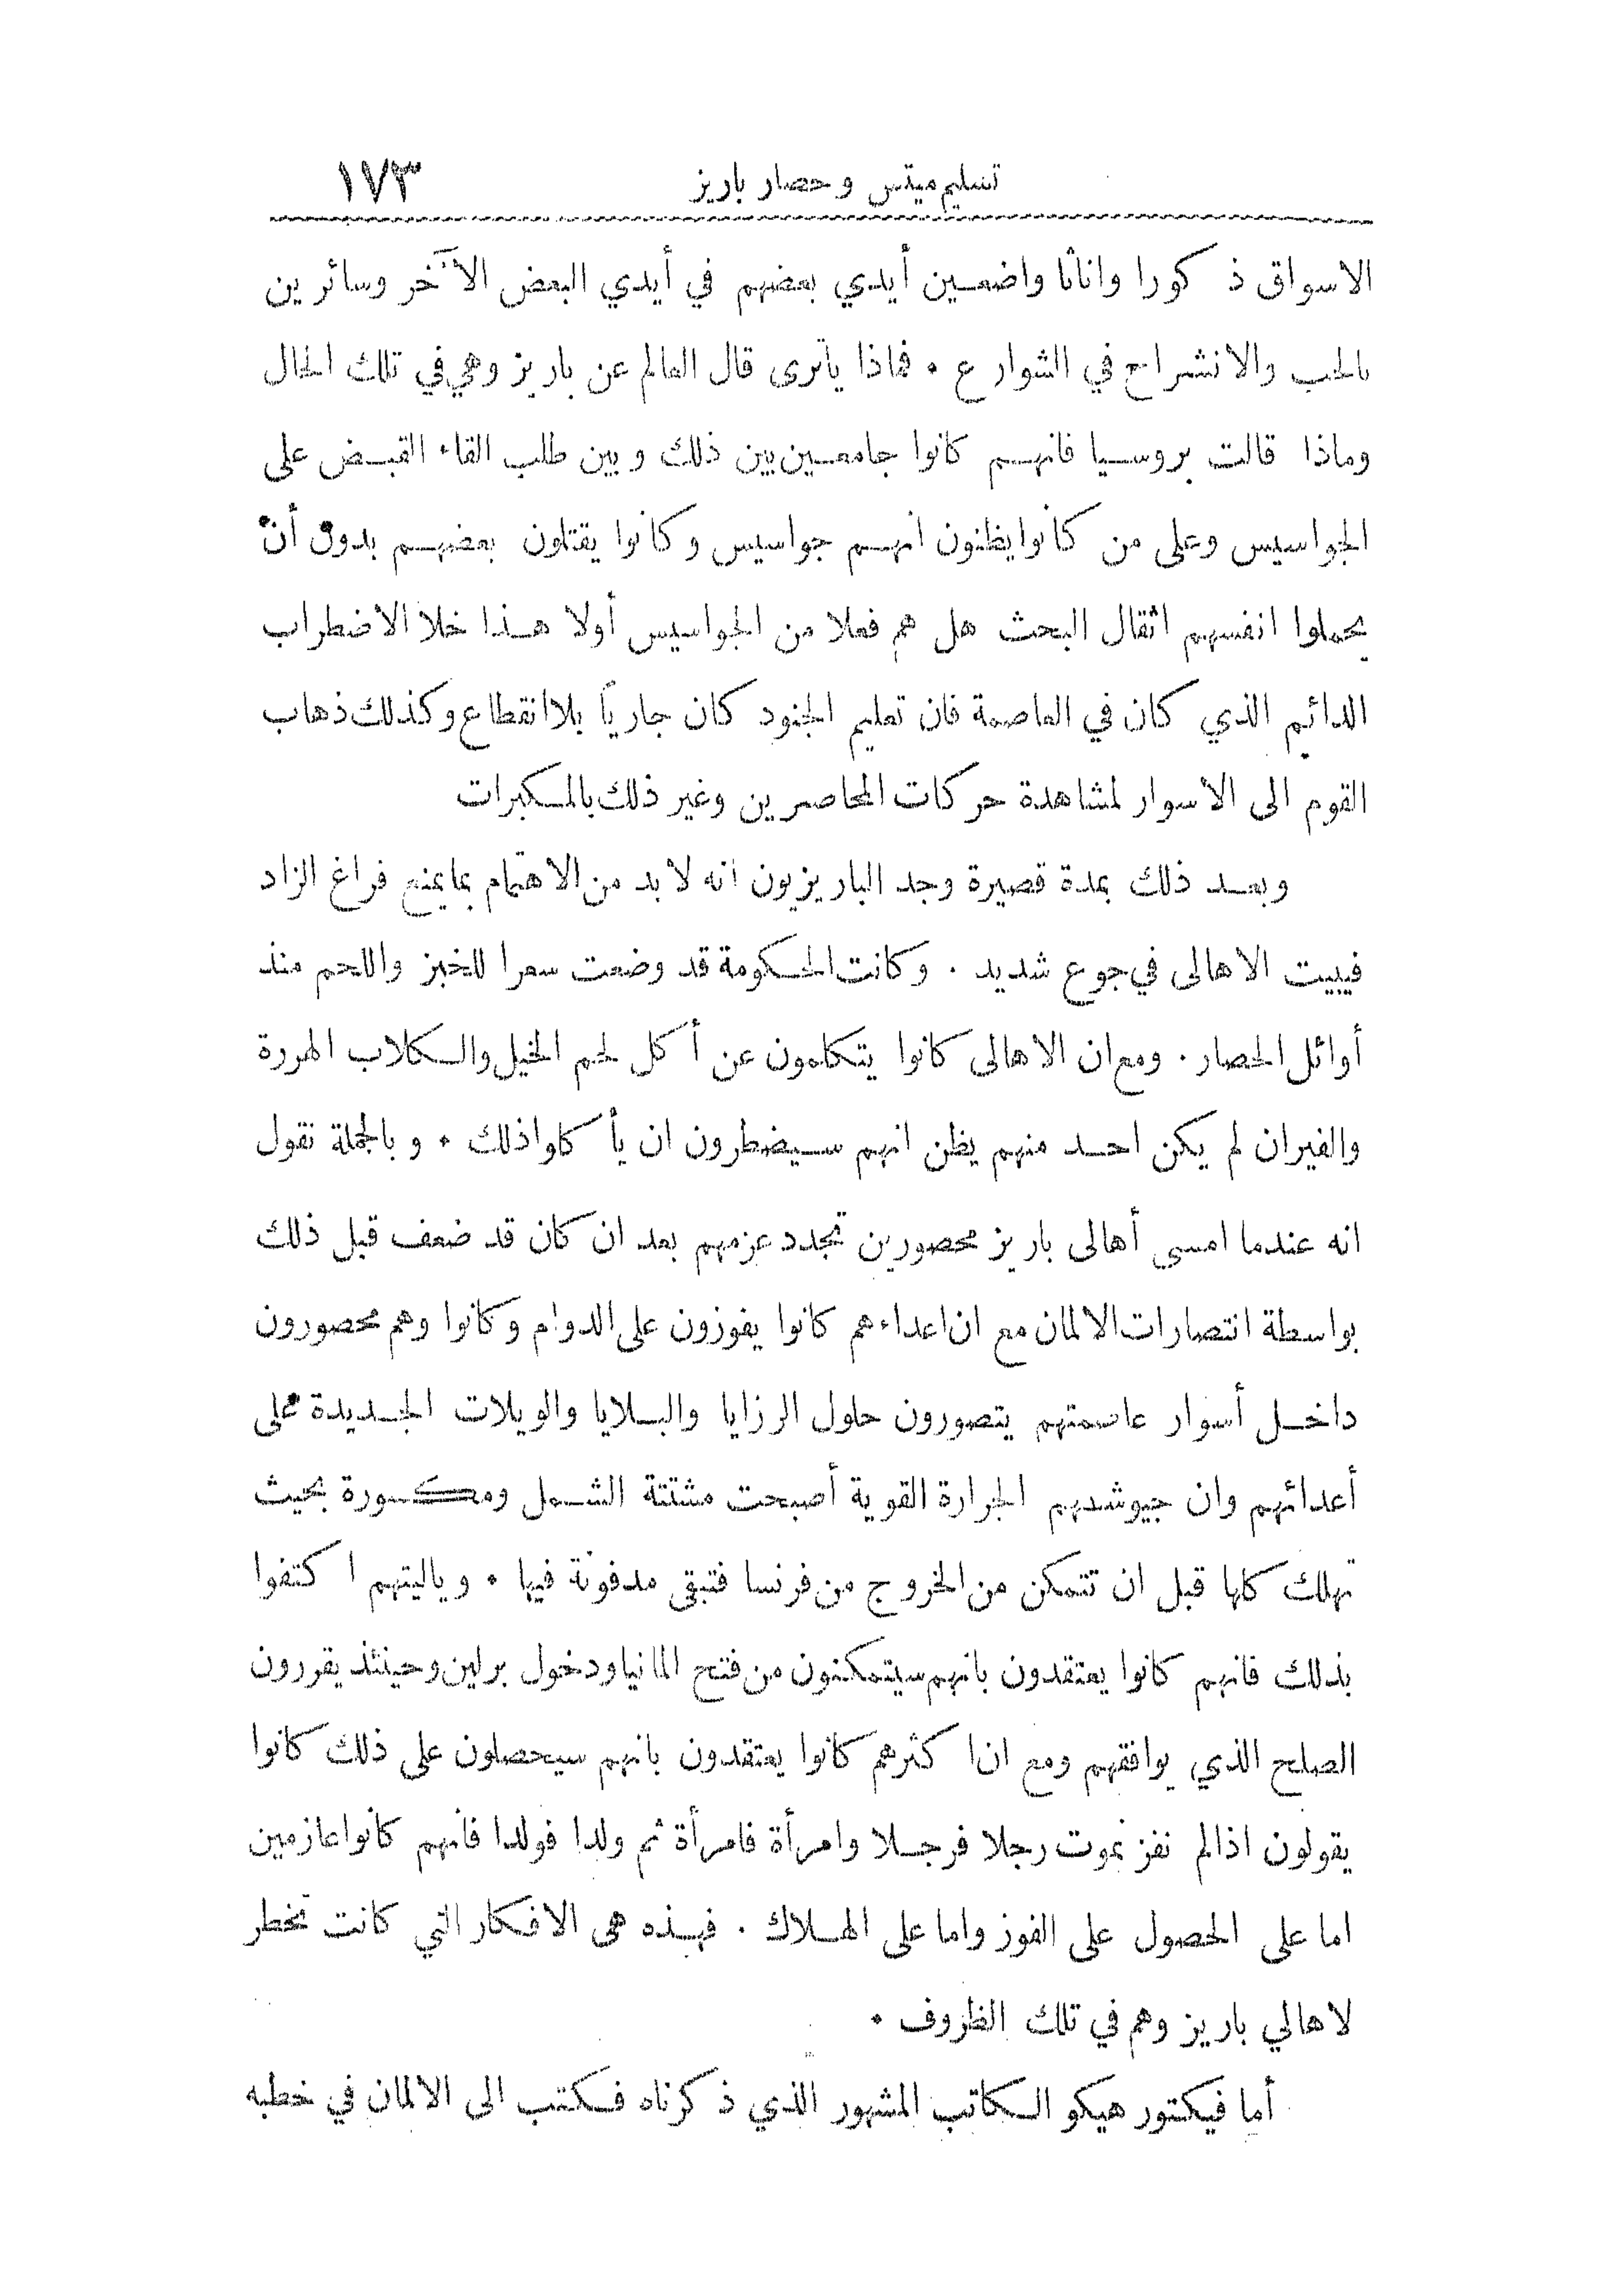 تسليم ميتس وحصار باريز ١٧٣
الاسواق ذكورا واناثا واضعين أيدي بعضهم في أيدي البعض الآخر وسائرين
بالحب والانشراح في الشوارع • فماذا ياترى قال العالم عن باريز وهي في تلك الحال
وماذا قالت بروسيا فانهم كانوا جامعين بين ذلك وبين طلب القاء القبض على
الجواسيس وعلى من كانوا يظنون انهم جواسيس وكانوا يقتلون بعضهم بدون أن
يحملوا انفسهم اثقال البحث هل هم فعلا من الجواسيس أولا هذا خلا الاضطراب
الدائم الذي كان في العاصمة فان تعليم الجنود كان جاريًا بلا انقطاع وكذلك ذهاب
القوم الى الاسوار لمشاهدة حركات المحاصرين وغير ذلك بالمكبرات
وبعد ذلك بمدة قصيرة وجد الباريزيون انه لا بد من الاهتمام بما يمنع فراغ الزاد
فيبيت الاهالى في جوع شديد . وكانت الحكومة قد وضعت سعرا للخبز واللحم منذ
أوائل الحصار . ومع ان الاهالى كانوا يتكلمون عن أكل لحم الخيل والكلاب الهررة
والفيران لم يكن احد منهم يظن انهم سيضطرون ان يأكلوا ذلك • وبالجملة نقول
انه عندما امسى أهالى باريز محصورين تجدد عزمهم بعد ان كان قد ضعف قبل ذلك
بواسطة انتصارات الالمان مع ان اعداءهم كانوا يفوزون على الدوام وكانوا وهم محصورون
داخل أسوار عاصمتهم يتصورون حلول الرزايا والبلايا والويلات الجديدة على
أعدائهم وان جيوشهم الجرارة القوية أصبحت مشتتة الشمل ومكسورة بحيث
تهلك كلها قبل ان تتمكن من الخروج من فرنسا فتبقى مدفونة فيها • وياليتهم اكتفوا
بذلك فانهم كانوا يعتقدون بانهم سيتمكنون من فتح المانيا ودخول برلين وحينئذ يقررون
الصلح الذي يوافقهم ومع ان اكثرهم كانوا يعتقدون بانهم سيحصلون على ذلك كانوا
يقولون اذا لم نفز نموت رجلا فرجلا وامرأة فامرأة ثم ولدا فولدا فانهم كانوا عازمين
اما على الحصول على الفوز واما على الهلاك . فهذه هى الافكار التي كانت تخطر
لاهالي باريز وهم في تلك الظروف •
أما فيكتور هيكو الكاتب المشهور الذي ذكرناه فكتب الى الالمان في خطبه